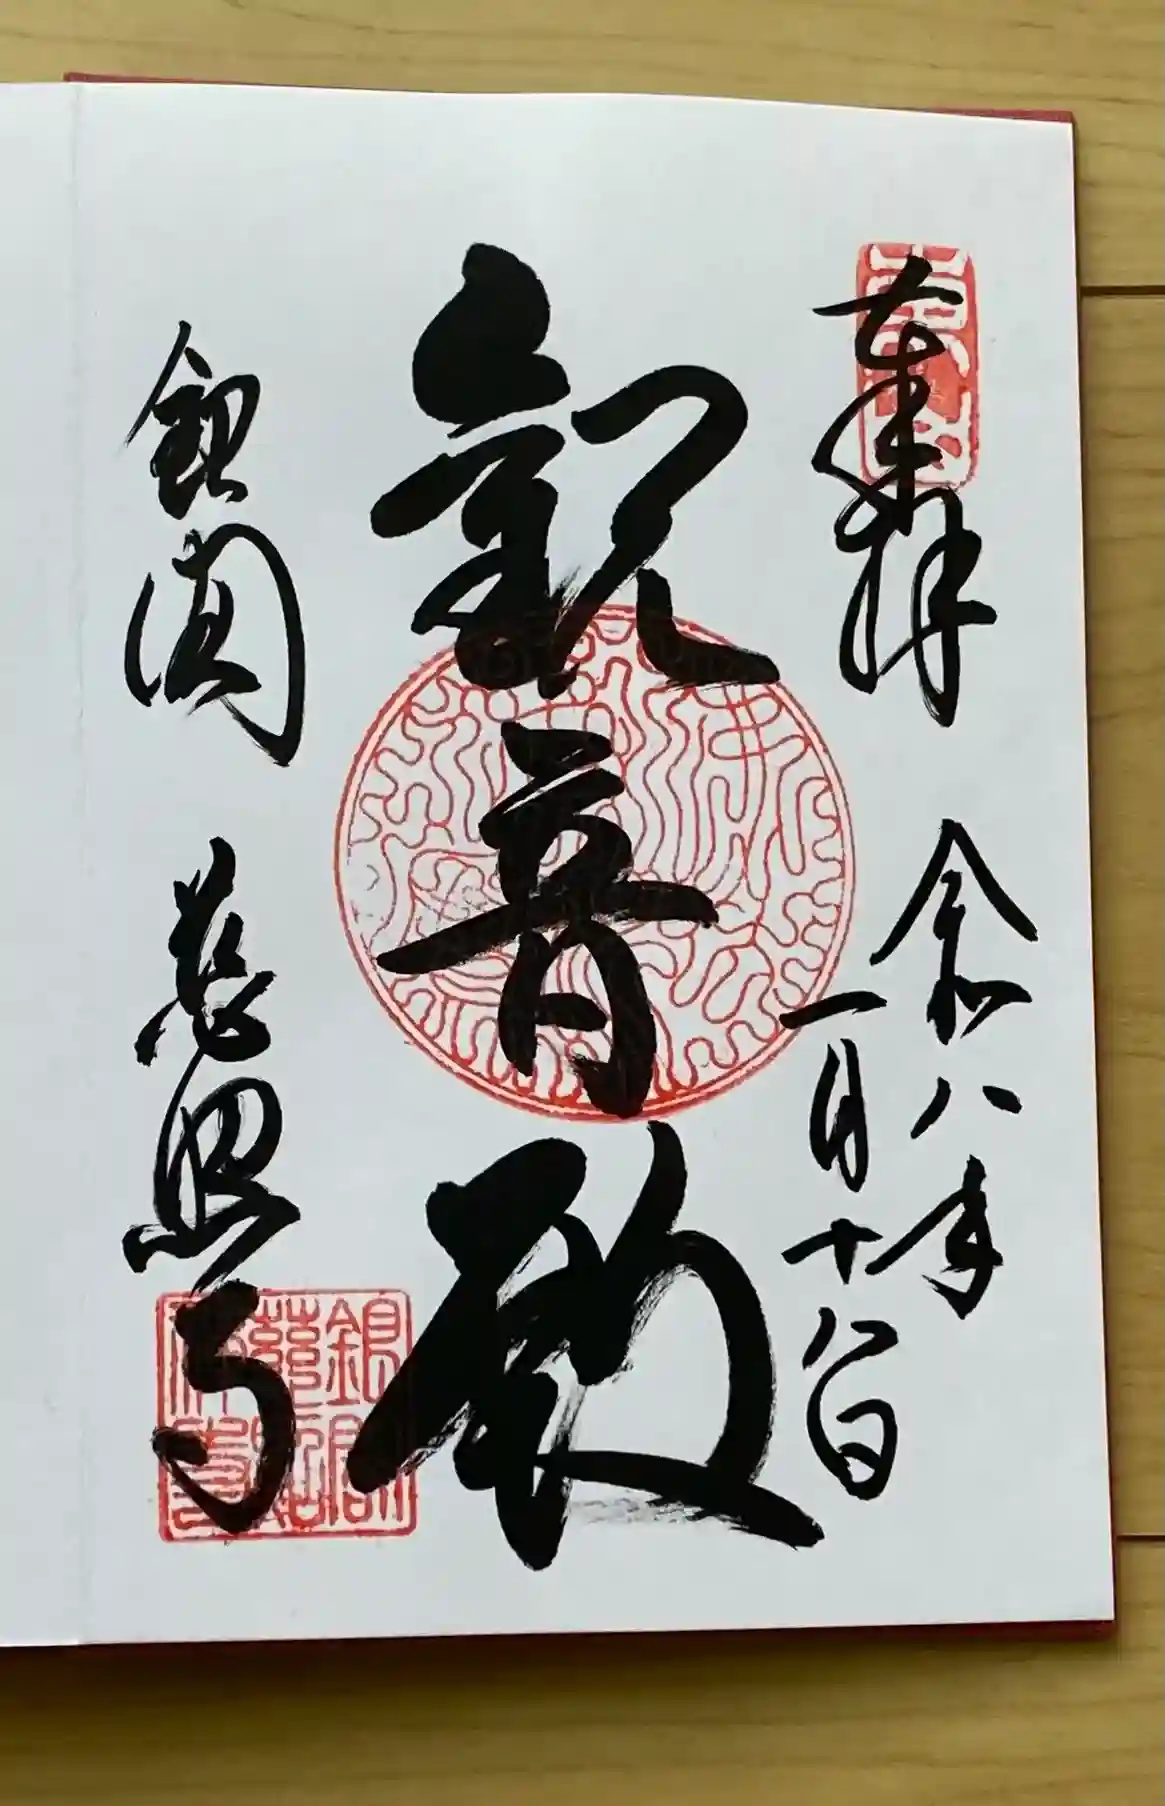 奉拝
令和八年
一月十八日
観音殿
銀閣 慈照寺
銀閣
慈照